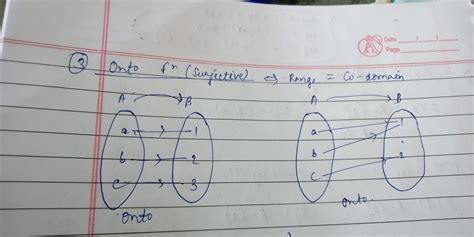 Date
Page
③ Onto fⁿ (Surjective) ⇔ Range = Co-domain
A → B A → B
a → 1 a 1
b → 2 b 2
c → 3 c
Onto onto